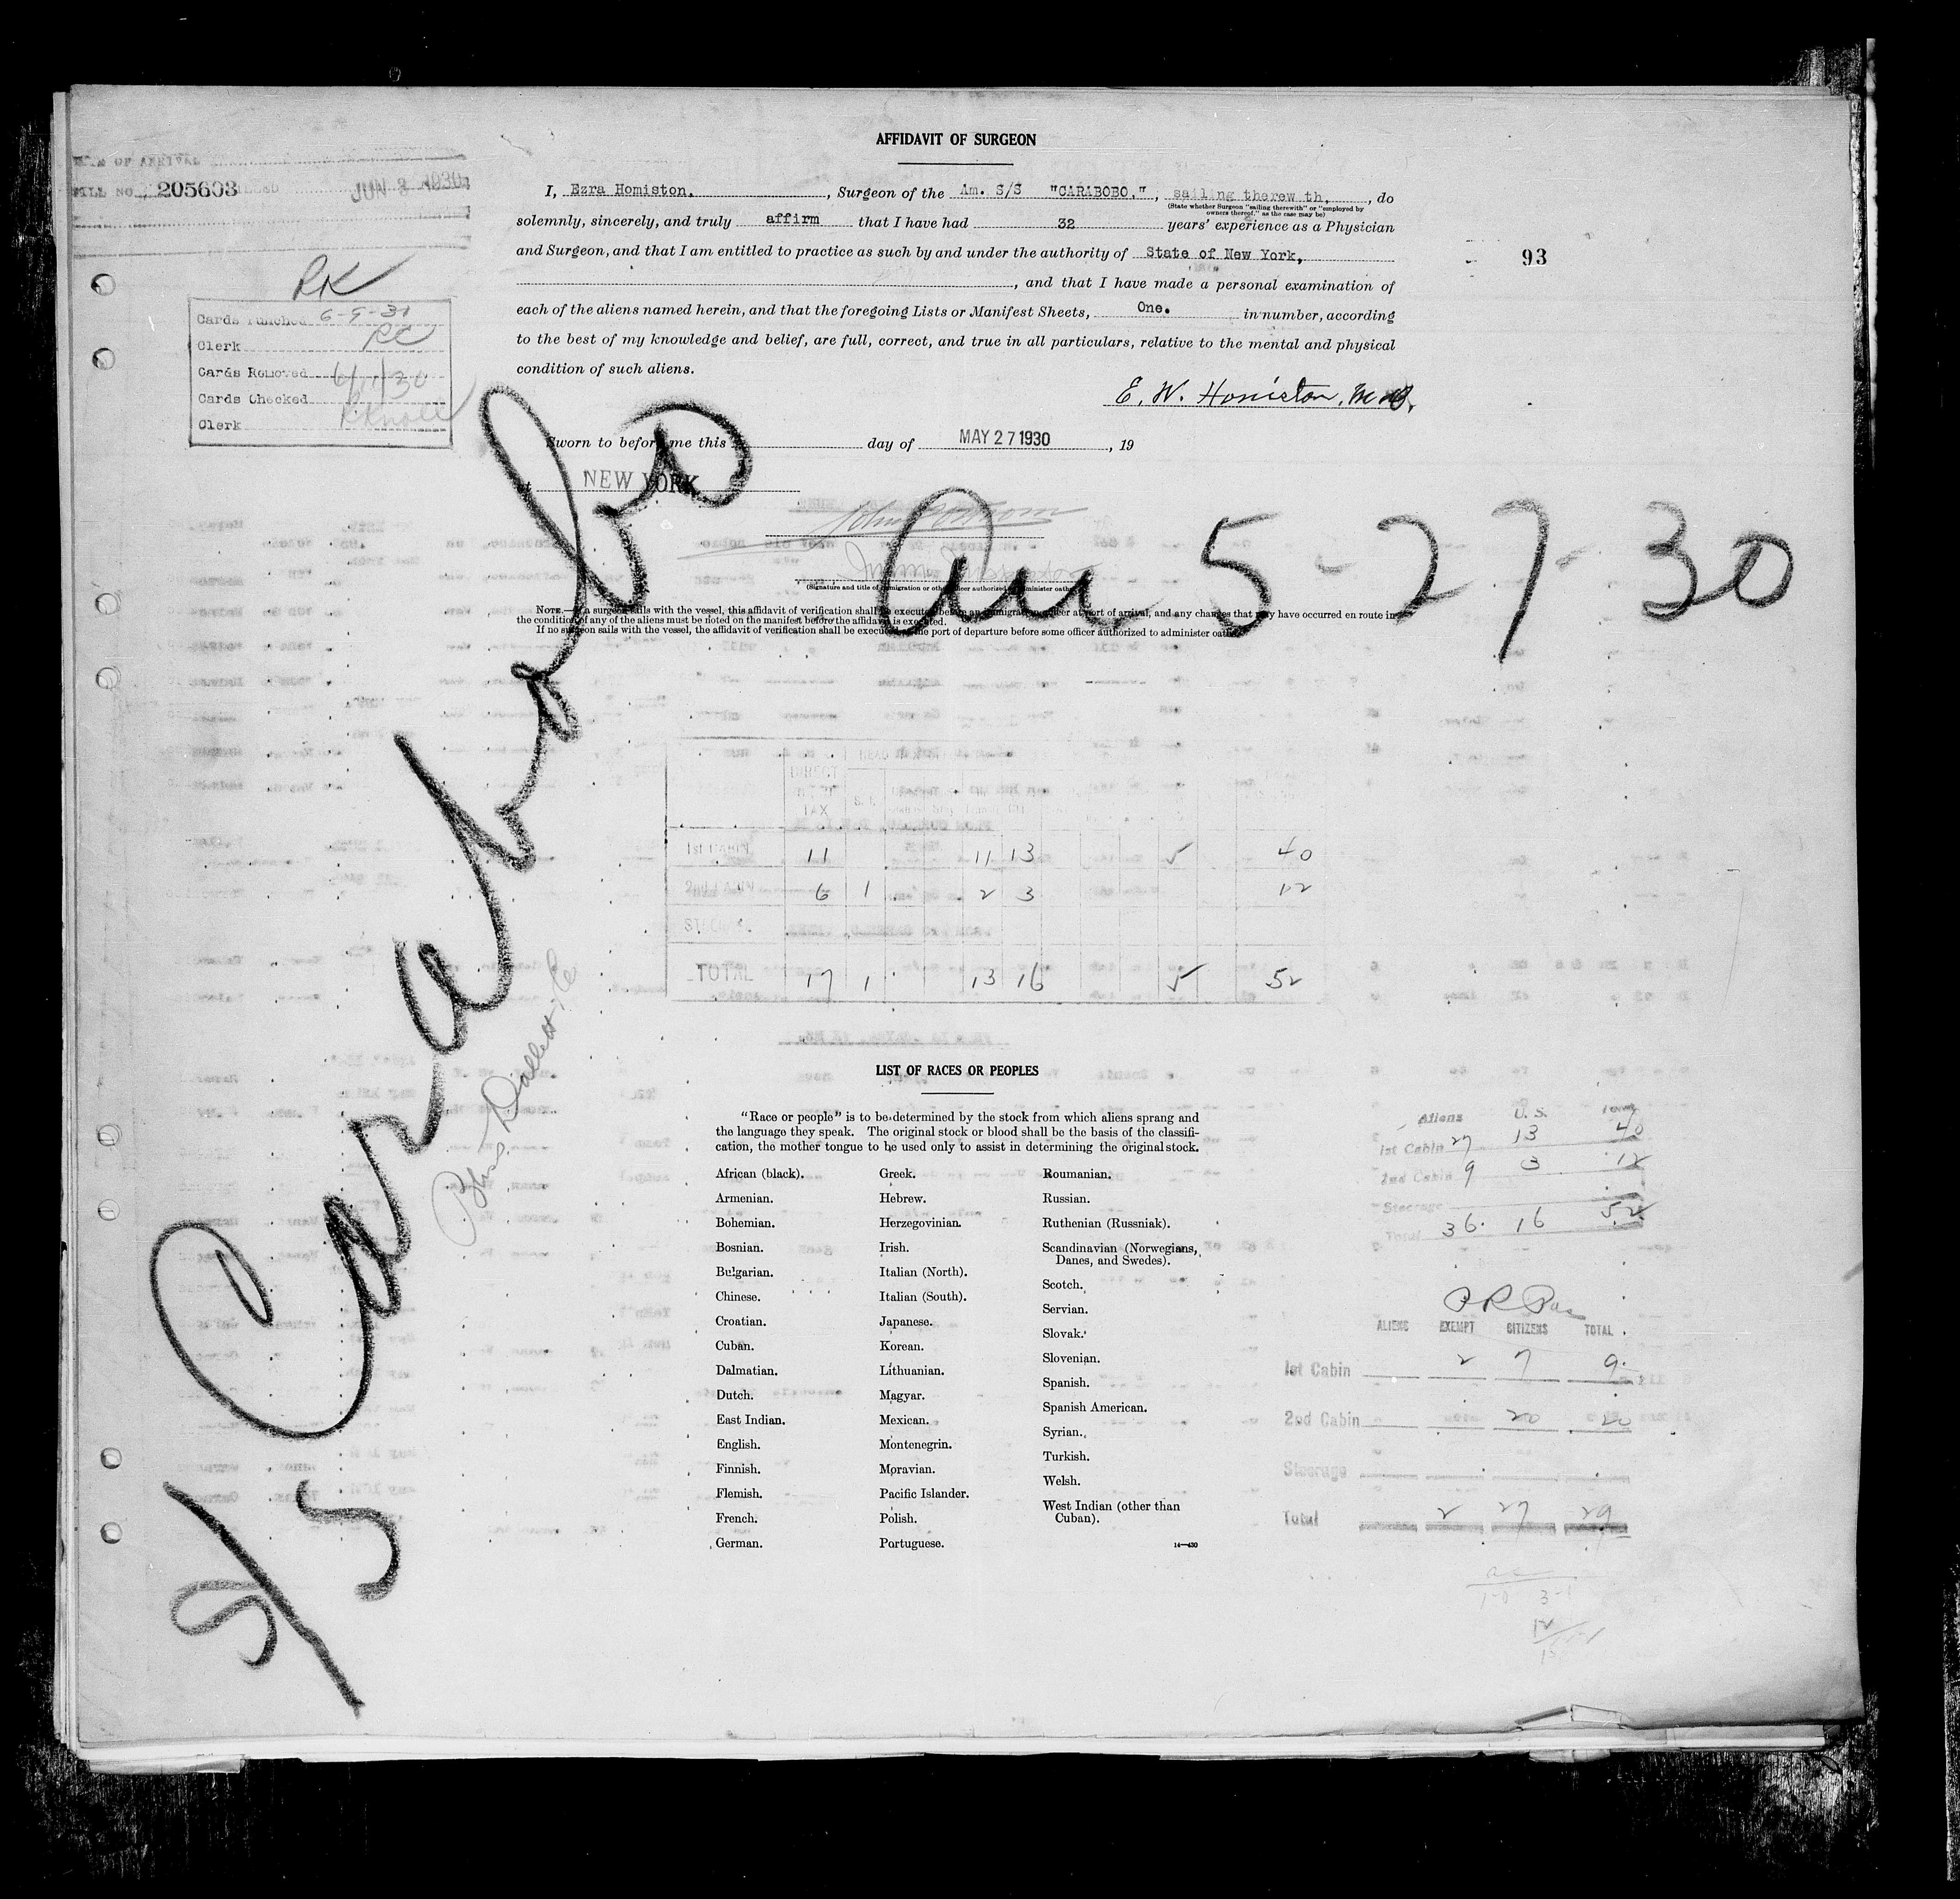 AFFIDAVIT OF SURGEON
I, Ezra Homiston, Surgeon of the Am. S/S "CARABOBO,", sailing therew th, do
(State whether Surgeon "sailing therewith" or "employed by
owners thereof," as the case may be)
solemnly, sincerely, and truly affirm that I have had 32 years' experience as a Physician
and Surgeon, and that I am entitled to practice as such by and under the authority of State of New York,
, and that I have made a personal examination of
each of the aliens named herein, and that the foregoing Lists or Manifest Sheets, One. in number, according
to the best of my knowledge and belief, are full, correct, and true in all particulars, relative to the mental and physical
condition of such aliens.
E. W. Homiston, M.D.
Sworn to before me this day of MAY 27 1930, 19
at NEW YORK
(Signature and title of immigration or other officer authorized to administer oaths)
NOTE.—If a surgeon sails with the vessel, this affidavit of verification shall be executed before an immigration officer at port of arrival, and any changes that may have occurred en route in
the condition of any of the aliens must be noted on the manifest before the affidavit is executed.
If no surgeon sails with the vessel, the affidavit of verification shall be executed at the port of departure before some officer authorized to administer oaths.
OF ARRIVAL
205603
JUN 3 1930
93
RK
Cards Punched 6-9-30
Clerk RC
Cards Removed 6/11/30
Cards Checked
Clerk
S/S Carabobo
5-27-30
DIRECT
TAX
HEAD
1st CABIN 11 11 13 5 40
2nd CABIN 6 1 2 3 12
STEERAGE
TOTAL 17 1 13 16 5 52
LIST OF RACES OR PEOPLES
"Race or people" is to be determined by the stock from which aliens sprang and
the language they speak. The original stock or blood shall be the basis of the classifi-
cation, the mother tongue to be used only to assist in determining the original stock.
African (black).
Armenian.
Bohemian.
Bosnian.
Bulgarian.
Chinese.
Croatian.
Cuban.
Dalmatian.
Dutch.
East Indian.
English.
Finnish.
Flemish.
French.
German.
Greek.
Hebrew.
Herzegovinian.
Irish.
Italian (North).
Italian (South).
Japanese.
Korean.
Lithuanian.
Magyar.
Mexican.
Montenegrin.
Moravian.
Pacific Islander.
Polish.
Portuguese.
Roumanian.
Russian.
Ruthenian (Russniak).
Scandinavian (Norwegians,
Danes, and Swedes).
Scotch.
Servian.
Slovak.
Slovenian.
Spanish.
Spanish American.
Syrian.
Turkish.
Welsh.
West Indian (other than
Cuban).
14—430
Aliens U.S. Total
1st Cabin 27 13 40
2nd Cabin 9 3 12
Steerage
Total 36 16 52
ALIENS EXEMPT CITIZENS TOTAL
1st Cabin 2 7 9
2nd Cabin 20 20
Steerage
Total 2 27 29